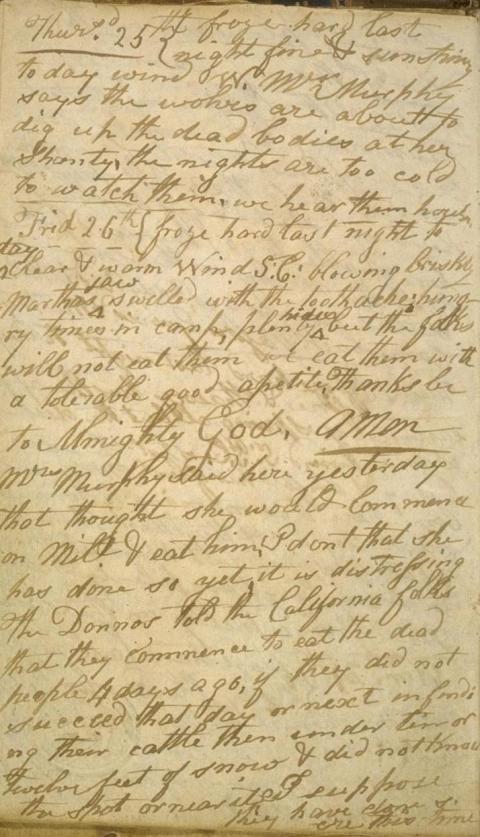 Thursd. 25th { froze hard last
night fine & sunshiny
today wind W. Mrs Murphy
says the wolves are about to
dig up the dead bodies at her
Shanty, the nights are too cold
to watch them, we hear them howl
Frid 26th { froze hard last night to
day clear & warm Wind S.E: blowing briskly
Marthas jaw swelled with the toothache; hung
ry times in camp, plenty hides but the folks
will not eat them we eat them with
a tolerable good apetite, Thanks be
to Almighty God, Amen
Mrs Murphy said here yesterday
that thought she would Commence
on Milt & eat him, I dont that she
has done so yet, it is distressing
The Donnos told the California folks
that they commence to eat the dead
people 4 days ago, if they did not
succeed that day or next in findi
ng their cattle then under ten or
twelve feet of snow & did not know
the spot or near it, I suppose
they have done so
ere this time